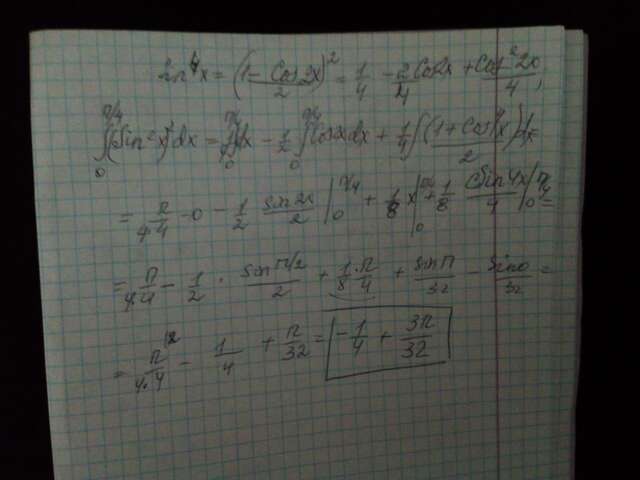 sin⁴x = (1 - Cos2x / 2)² = 1/4 - 2/4 Cos2x + Cos²2x / 4,
∫₀^(π/4) (Sin²x)² dx = ∫₀^(π/4) dx - 1/2 ∫₀^(π/4) Cos2x dx + 1/4 ∫ (1 + Cos4x / 2) dx =
= π / 4·4 - 0 - 1/2 sin2x / 2 |₀^(π/4) + 1/8 x |₀^(π/4) + 1/8 Sin4x / 4 |₀^(π/4) =
= π / 4·4 - 1/2 · sin π/2 / 2 + 1/8 · π/4 + sinπ / 32 - sin0 / 32 =
= π / 4·4 - 1/4 + π/32 = - 1/4 + 3π/32